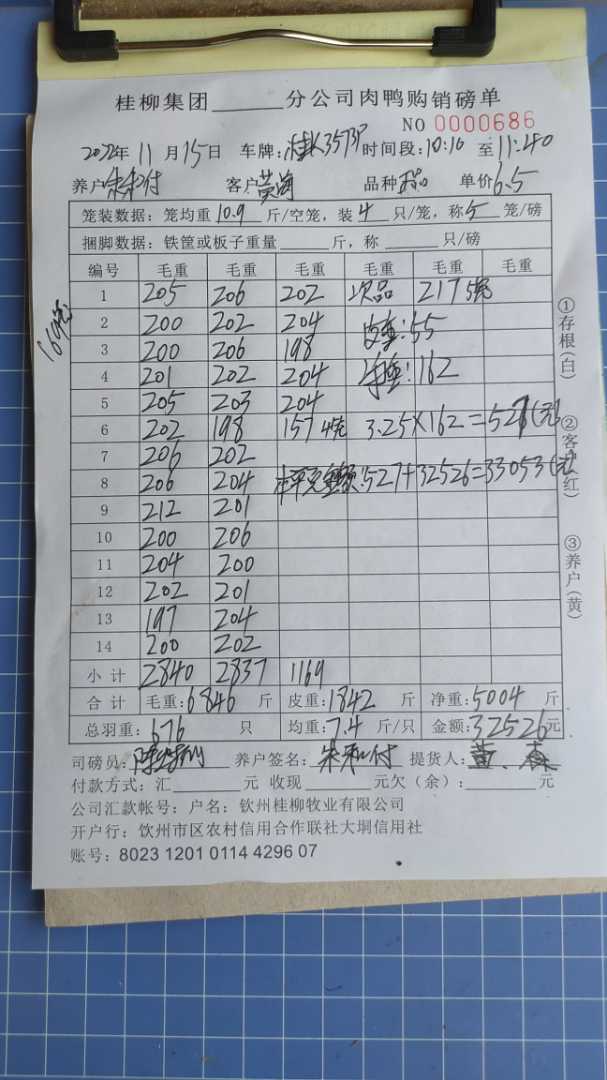 桂柳集团______分公司肉鸭购销磅单
NO 0000686
2022年 11月15日 车牌: 时间段:10:10 至11:40
养户 付 客户 品种 单价6.5
笼装数据: 笼均重 10.9 斤/空笼, 装 4 只/笼, 称 5 笼/磅
捆脚数据: 铁筐或板子重量______斤, 称______只/磅
编号 毛重 毛重 毛重 毛重 毛重 毛重
1 205 206 202 次品 217 5笼
2 200 202 204 皮重:55
3 200 206 198
4 201 202 204 净重:162
5 205 203 204
6 202 198 157 4笼 3.25×162=527(元)
7 206 202
8 206 204 527+32526=33053(元)
9 212 201
10 200 206
11 204 200
12 202 201
13 197 204
14 200 202
小计 2840 2837 1169
合计 毛重:6846 斤 皮重:1842 斤 净重:5004 斤
总羽重:676 只 均重:7.4 斤/只 金额:32526元
司磅员: 养户签名: 朱 付 提货人:黄
付款方式:汇______元 收现______元欠(余):______元
公司汇款帐号: 户名: 钦州桂柳牧业有限公司
开户行: 饮州市区农村信用合作联社大垌信用社
账号: 8023 1201 0114 4296 07
169笼
①存根(白)
②客户(红)
③养户(黄)